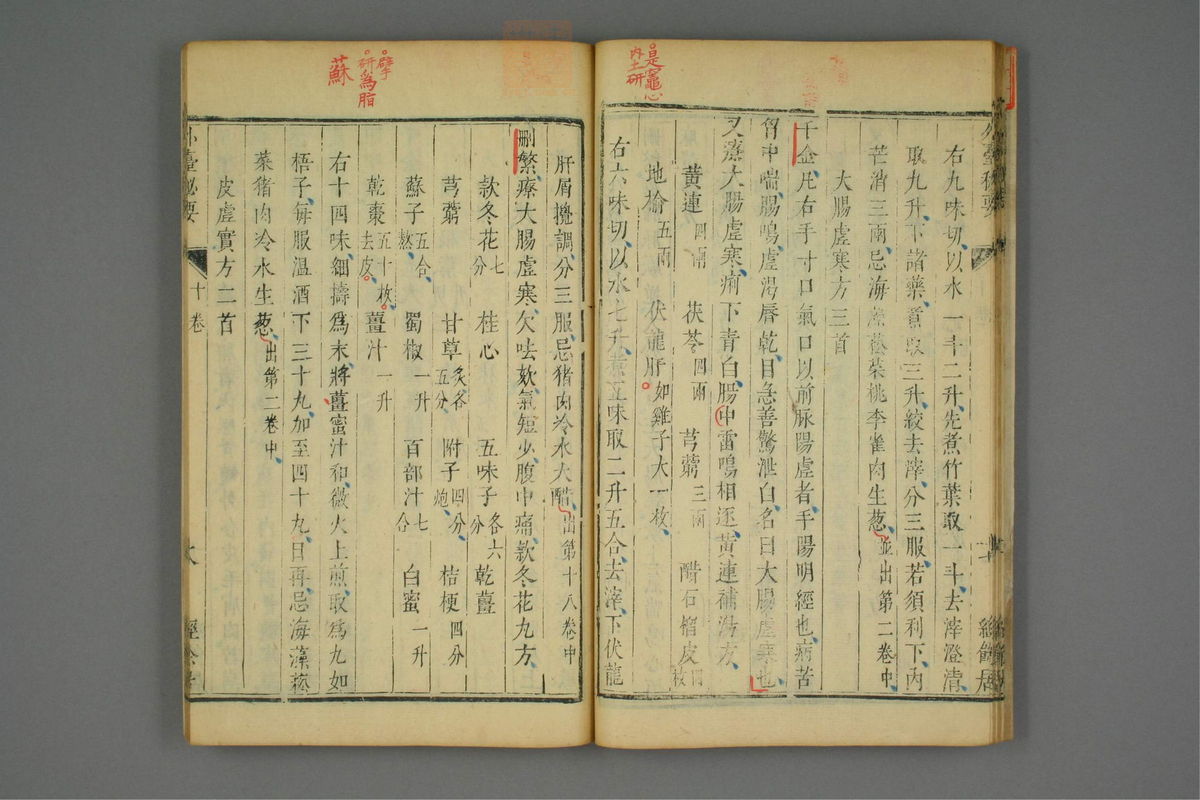 是竈心
内土研
右九味切以水一斗二升先煮竹葉取一斗去滓澄清
取九升下諸藥煮取三升絞去滓分三服若須利下内
芒消三兩忌海藻菘菜桃李雀肉生葱並出第二卷中
大腸虛寒方三首
千金凡右手寸口氣口以前脉陽虛者手陽明經也病苦
胷中喘腸鳴虛渇唇乾目急善驚泄白名曰大腸虛寒也
又療大腸虛寒痢下青白腸中雷鳴相逐黃連補湯方
黃連四兩 茯苓四兩 芎藭三兩 醋石榴皮四枚
地榆五兩 伏龍肝如雞子大一枚
右六味切以水七升煮五味取二升五合去滓下伏龍
研爲脂
蘇
肝屑攪調分三服忌猪肉冷水大醋出第十八卷中
刪繁療大腸虛寒欠呿欬氣短少腹中痛款冬花丸方
款冬花七分 桂心 五味子各六分 乾薑
芎藭 甘草炙各五分 附子四分炮 桔梗四分
蘇子五合熬 蜀椒一升 百部汁七合 白蜜一升
乾棗五十枚去皮 薑汁一升
右十四味細擣爲末將薑蜜汁和微火上煎取爲丸如
梧子每服温酒下三十丸加至四十丸日再忌海藻菘
菜猪肉冷水生葱出第二卷中
皮虛實方二首
外臺秘要 十卷